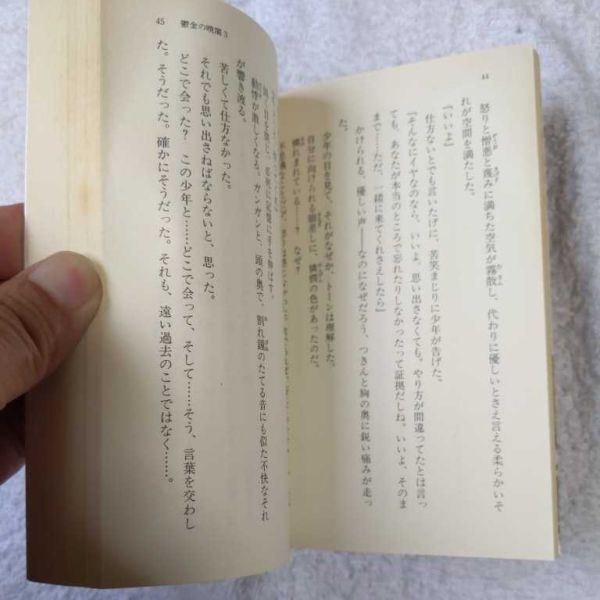 44
怒りと憎悪と蔑みに満ちた空気が霧散し、代わりに優しいとさえ言える柔らかいそ
れが空間を満たした。
『いいよ』
仕方ないとでも言いたげに、苦笑まじりに少年が告げた。
『そんなにイヤなのなら、いいよ、思い出さなくても。やり方が間違ってたとは言っ
ても、あなたが本当のところで忘れたりしなかったって証拠だしね。いいよ、そのま
まで……ただ、一緒に来てくれさえしたら』
かけられる、優しい声――なのになぜだろう、つきんと胸の奥に鋭い痛みが走っ
た。
少年の目を見て、それがなぜか、トーンは理解した。
自分に向けられる眼差しに、憐憫の色があったのだ。
憐れまれている――? なぜ?
45 鬱金の暁闇3
動悸が激しくなる。ガンガンと、頭の奥で、割れ鐘のたてる音にも似た不快なそれ
が響き渡る。
苦しくて仕方なかった。
それでも思い出さねばならないと、思った。
どこで会った? この少年と……どこで会って、そして……そう、言葉を交わし
た。そうだった。確かにそうだった。それも、遠い過去のことではなく……。